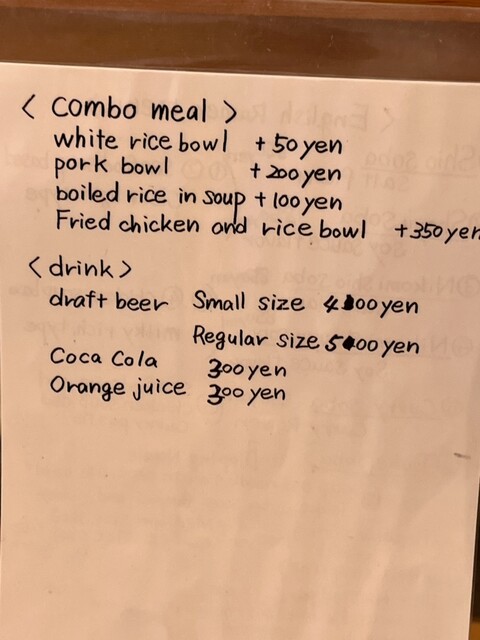 < combo meal >
white rice bowl +50 yen
pork bowl +200 yen
boiled rice in soup +100 yen
Fried chicken and rice bowl +350 yen
< drink >
draft beer Small size 400 yen
Regular size 500 yen
Coca Cola 300 yen
Orange juice 300 yen